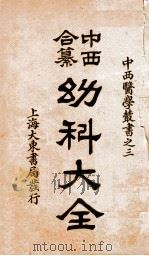 中西醫學叢書之三
中西
合纂
幼科大全
上海大東書局發行
www.toutu001.com